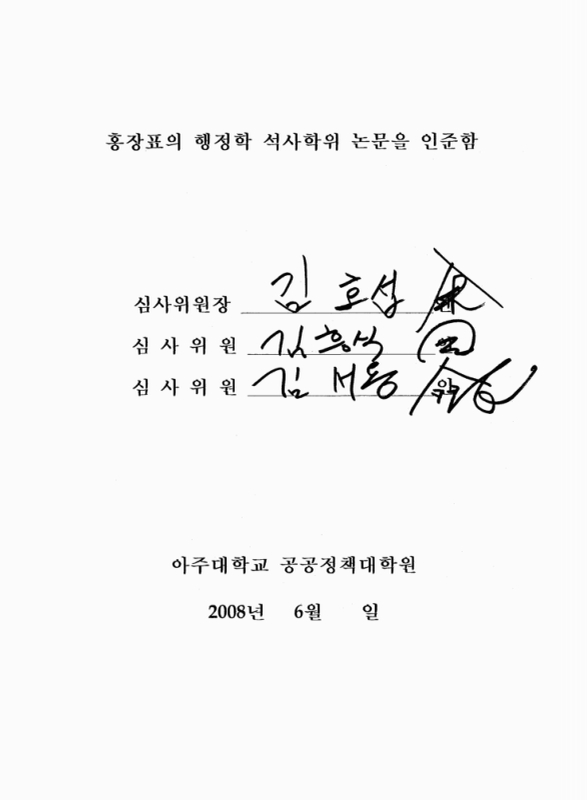 홍장표의 행정학 석사학위 논문을 인준함
심사위원장 김 호섭
심 사 위 원 김흥식
심 사 위 원 김 서용
아주대학교 공공정책대학원
2008년 6월 일